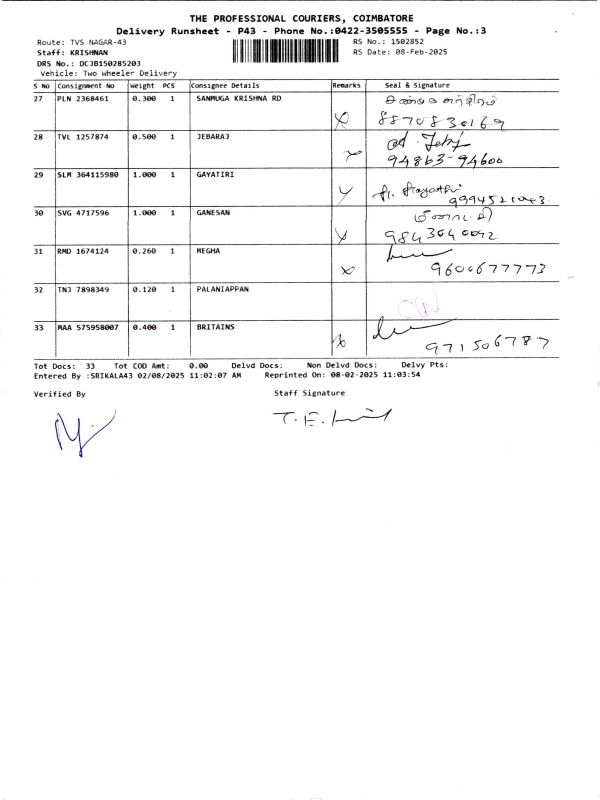 THE PROFESSIONAL COURIERS, COIMBATORE
Delivery Runsheet - P43 - Phone No.:0422-3505555 - Page No.:3
Route: TVS NAGAR-43 RS No.: 1502852
Staff: KRISHNAN RS Date: 08-Feb-2025
DRS No.: DCJB150285203
Vehicle: Two Wheeler Delivery
S No Consignment No Weight PCS Consignee Details Remarks Seal & Signature
27 PLN 2368461 0.300 1 SANMUGA KRISHNA RD
8870830169
28 TVL 1257874 0.500 1 JEBARAJ
94863-94600
29 SLM 364115980 1.000 1 GAYATIRI
30 SVG 4717596 1.000 1 GANESAN
9843040092
31 RMD 1674124 0.260 1 MEGHA
9600677773
32 TNJ 7898349 0.120 1 PALANIAPPAN
33 MAA 575958007 0.400 1 BRITAINS
9715067877
Tot Docs: 33 Tot COD Amt: 0.00 Delvd Docs: Non Delvd Docs: Delvy Pts:
Entered By :SRIKALA43 02/08/2025 11:02:07 AM Reprinted On: 08-02-2025 11:03:54
Verified By Staff Signature